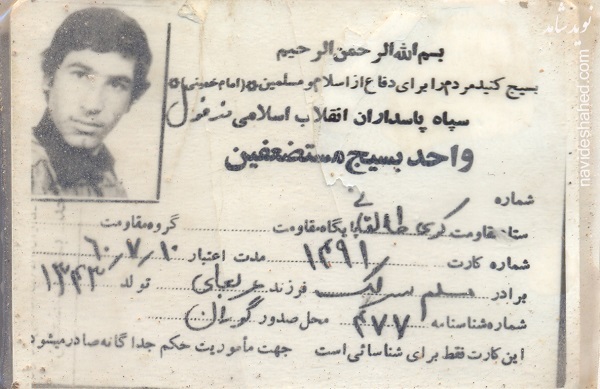 نوید شاهد
navideshahed.com
بسم الله الرحمن الرحیم
بسیج کنید مردم را برای دفاع از اسلام و مسلمین (امام خمینی)
سپاه پاسداران انقلاب اسلامی دزفول
واحد بسیج مستضعفین
شماره
ستاد مقاومت پایگاه مقاومت گروه مقاومت
شماره کارت ۱۴۹۱ مدت اعتبار ۶۰/۷/۱۰
برادر مسلم فرزند تولد ۱۳۴۳
شماره شناسنامه ۴۷۷ محل صدور
این کارت فقط برای شناسائی است جهت مأموریت حکم جداگانه صادر میشود